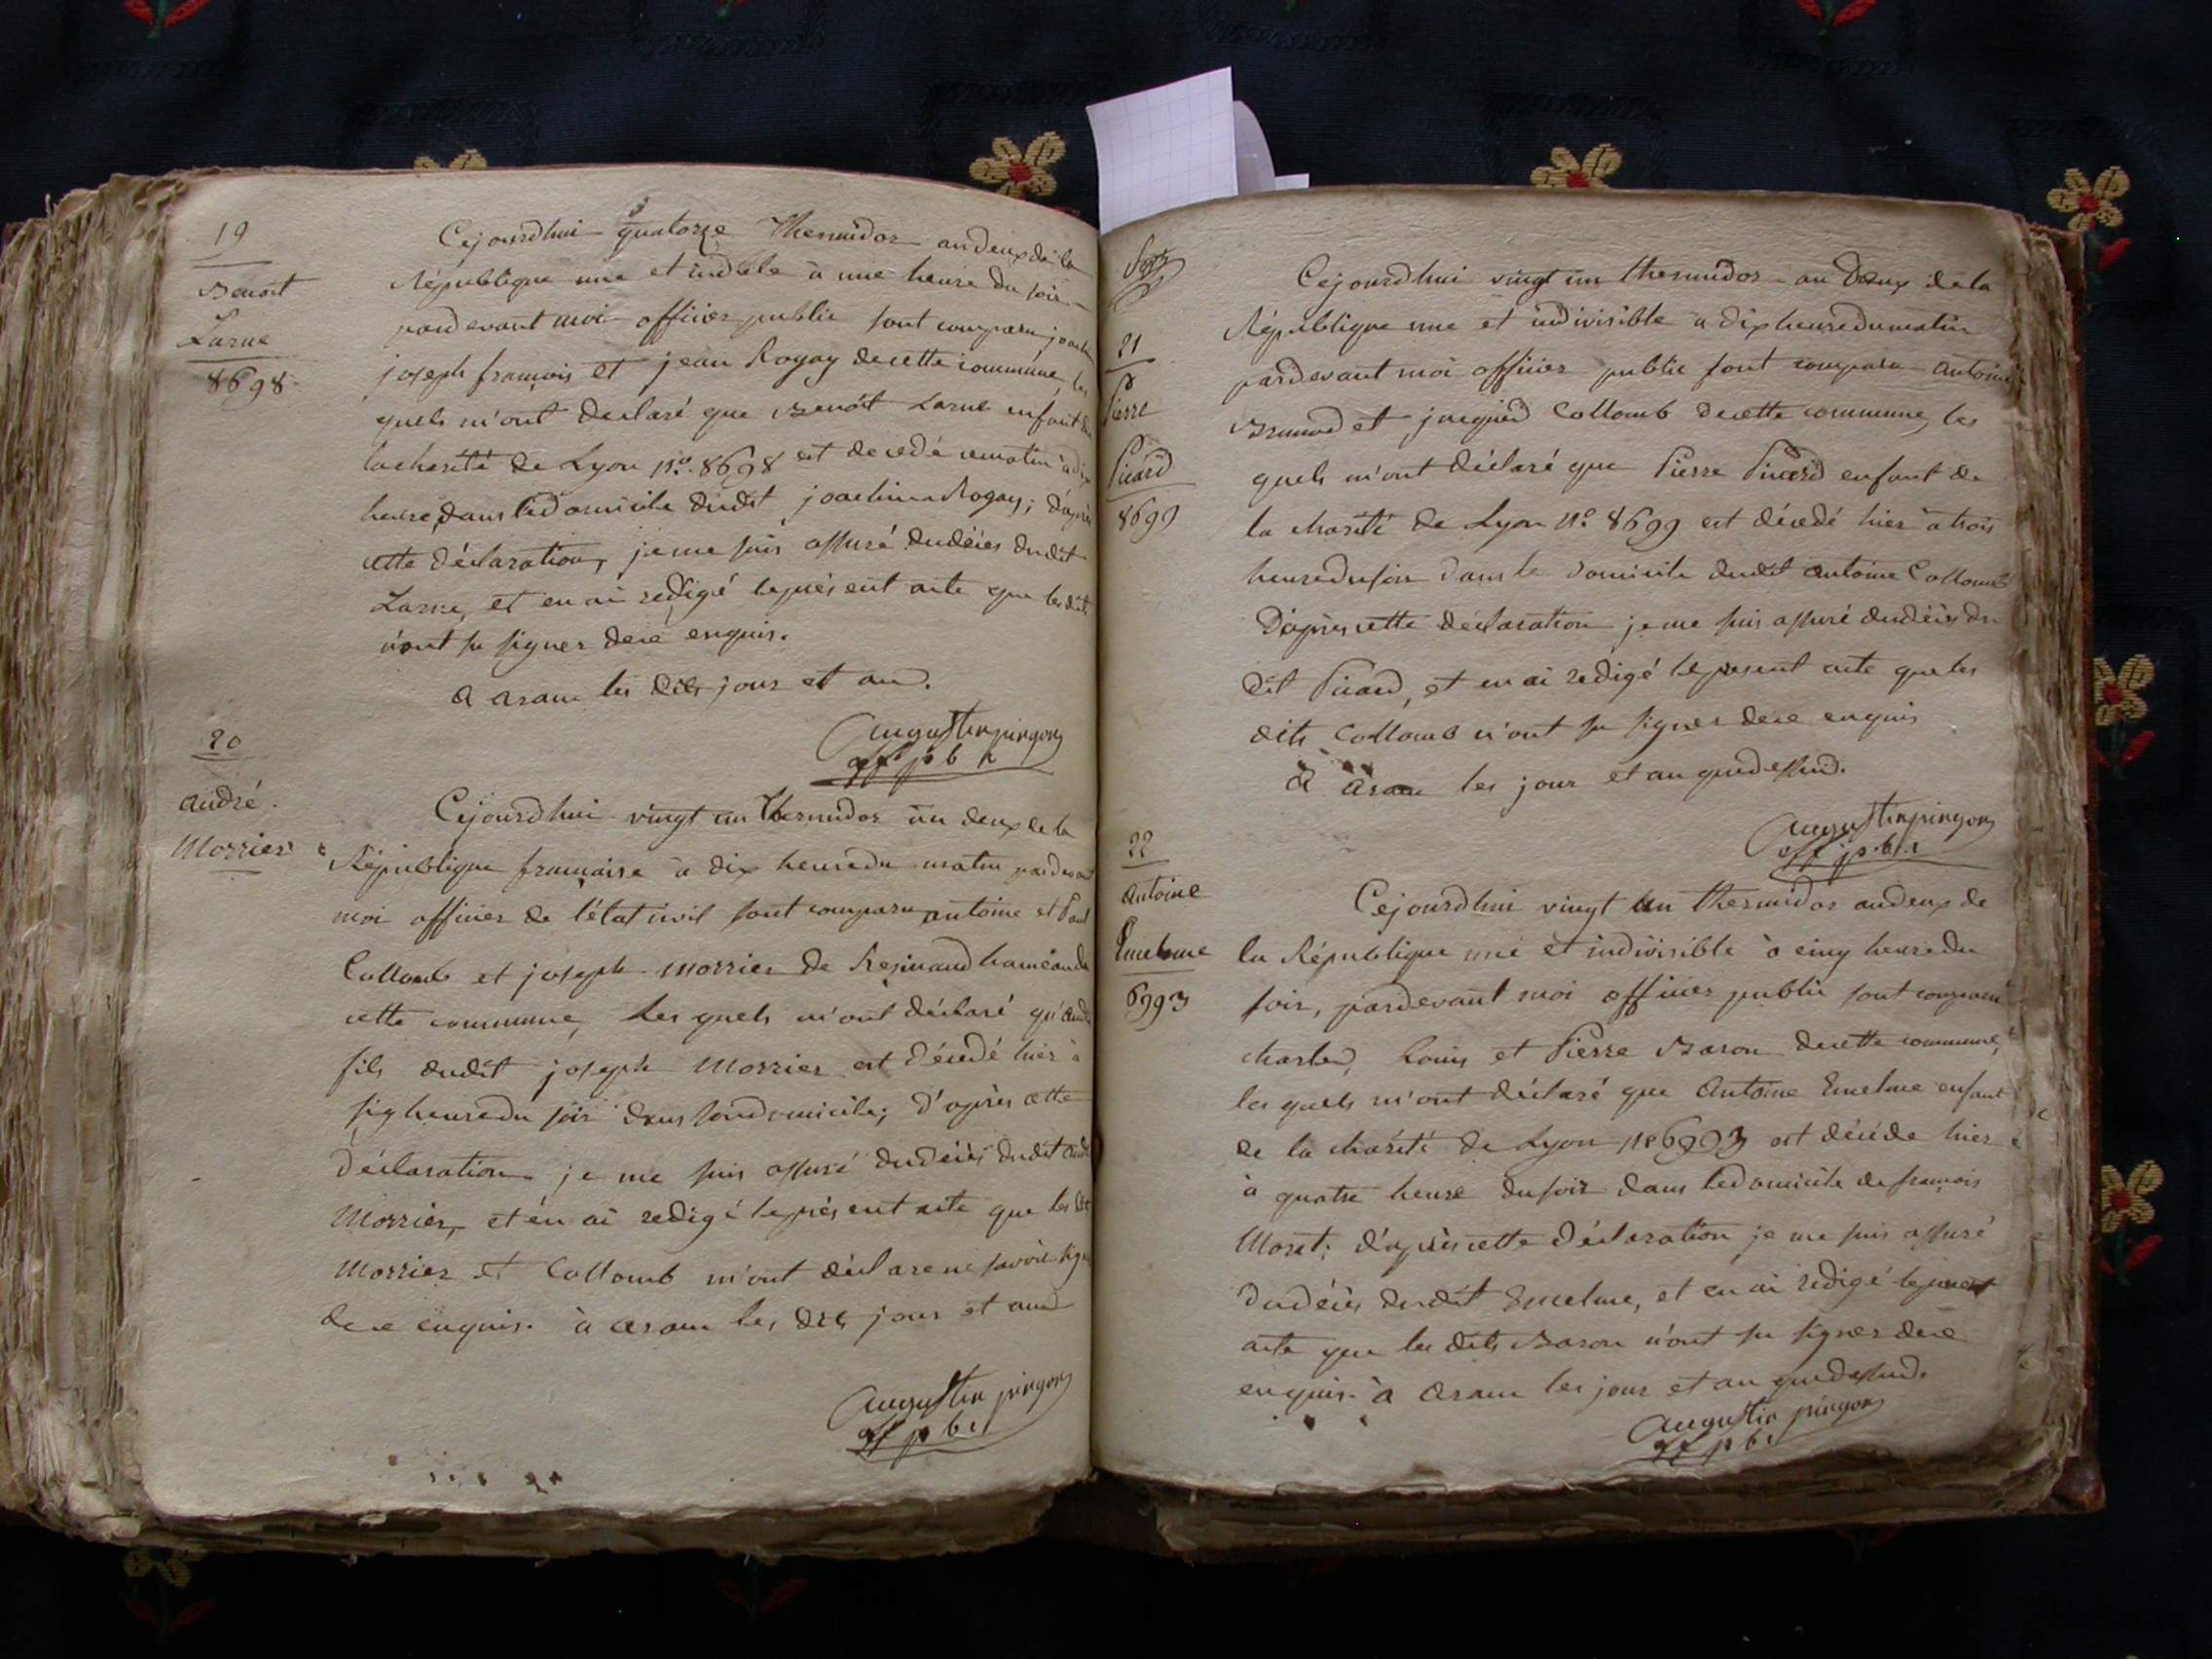 19
Benoit
Larue
8698
Cejourdhui quatorze Thermidor an deux de la
République une et indble à une heure du soir
pardevant moi officier public sont comparu joachim
joseph françois et jean Rogay de cette commune, les
quels m'ont declaré que Benoit Larue enfant de
la charité de Lyon no. 8698 est decedé ce matin à dix
heure, dans le domicile dudit joachim Rogay; d'après
cette déclaration, je me suis assuré du décès dudit
Larue, et en ai redigé le présent acte que les dits
n'ont su signer de ce enquis.
a aranc les dits jour et an.
augustin pingon
off pbc
20
andré
Morrier
Cejourdhui vingt un Thermidor an deux de la
République française à dix heure du matin pardevant
moi officier de l'état civil sont comparu antoine et Paul
Collomb et joseph Morrier de Resinand hameau de
cette commune, les quels m'ont déclaré qu'andré
fils dudit joseph Morrier est décedé hier à
six heure du soir dans son domicile; d'après cette
déclaration je me suis assuré du décès dudit andré
Morrier, et en ai redigé le présent acte que les dits
Morrier et Collomb m'ont déclare ne savoir signer
de ce enquis. à aranc les dits jour et an
augustin pingon
off pbc
21
Pierre
Picard
8699
Cejourdhui vingt un thermidor an deux de la
République une et indivisible à dix heure du matin
pardevant moi officier public sont comparu antoine
Brunod et Collomb de cette commune, les
quels m'ont déclaré que Pierre Picard enfant de
la charité de Lyon no. 8699 est décedé hier à trois
heure du soir dans le domicile dudit antoine Collomb
D'après cette déclaration je me suis assuré du décès du
dit Picard, et en ai redigé le present acte que les
dits Collomb n'ont su signer de ce enquis
à aranc les jour et an que dessus.
augustin pingon
off pbc
22
antoine
Emelme
6993
Cejourdhui vingt un thermidor an deux de
la République une et indivisible à cinq heure du
soir, pardevant moi officier public sont comparu
charles, Louis et Pierre Baron de cette commune,
les quels m'ont déclaré que Antoine Emelme enfant
de la charité de Lyon no 6993 est décédé hier
à quatre heure du soir dans le domicile de françois
Moret; d'après cette déclaration je me suis assuré
du décès dudit Emelme, et en ai redigé le present
acte que les dits Baron n'ont su signer de ce
enquis. à aranc les jour et an que dessus.
augustin pingon
off pbc